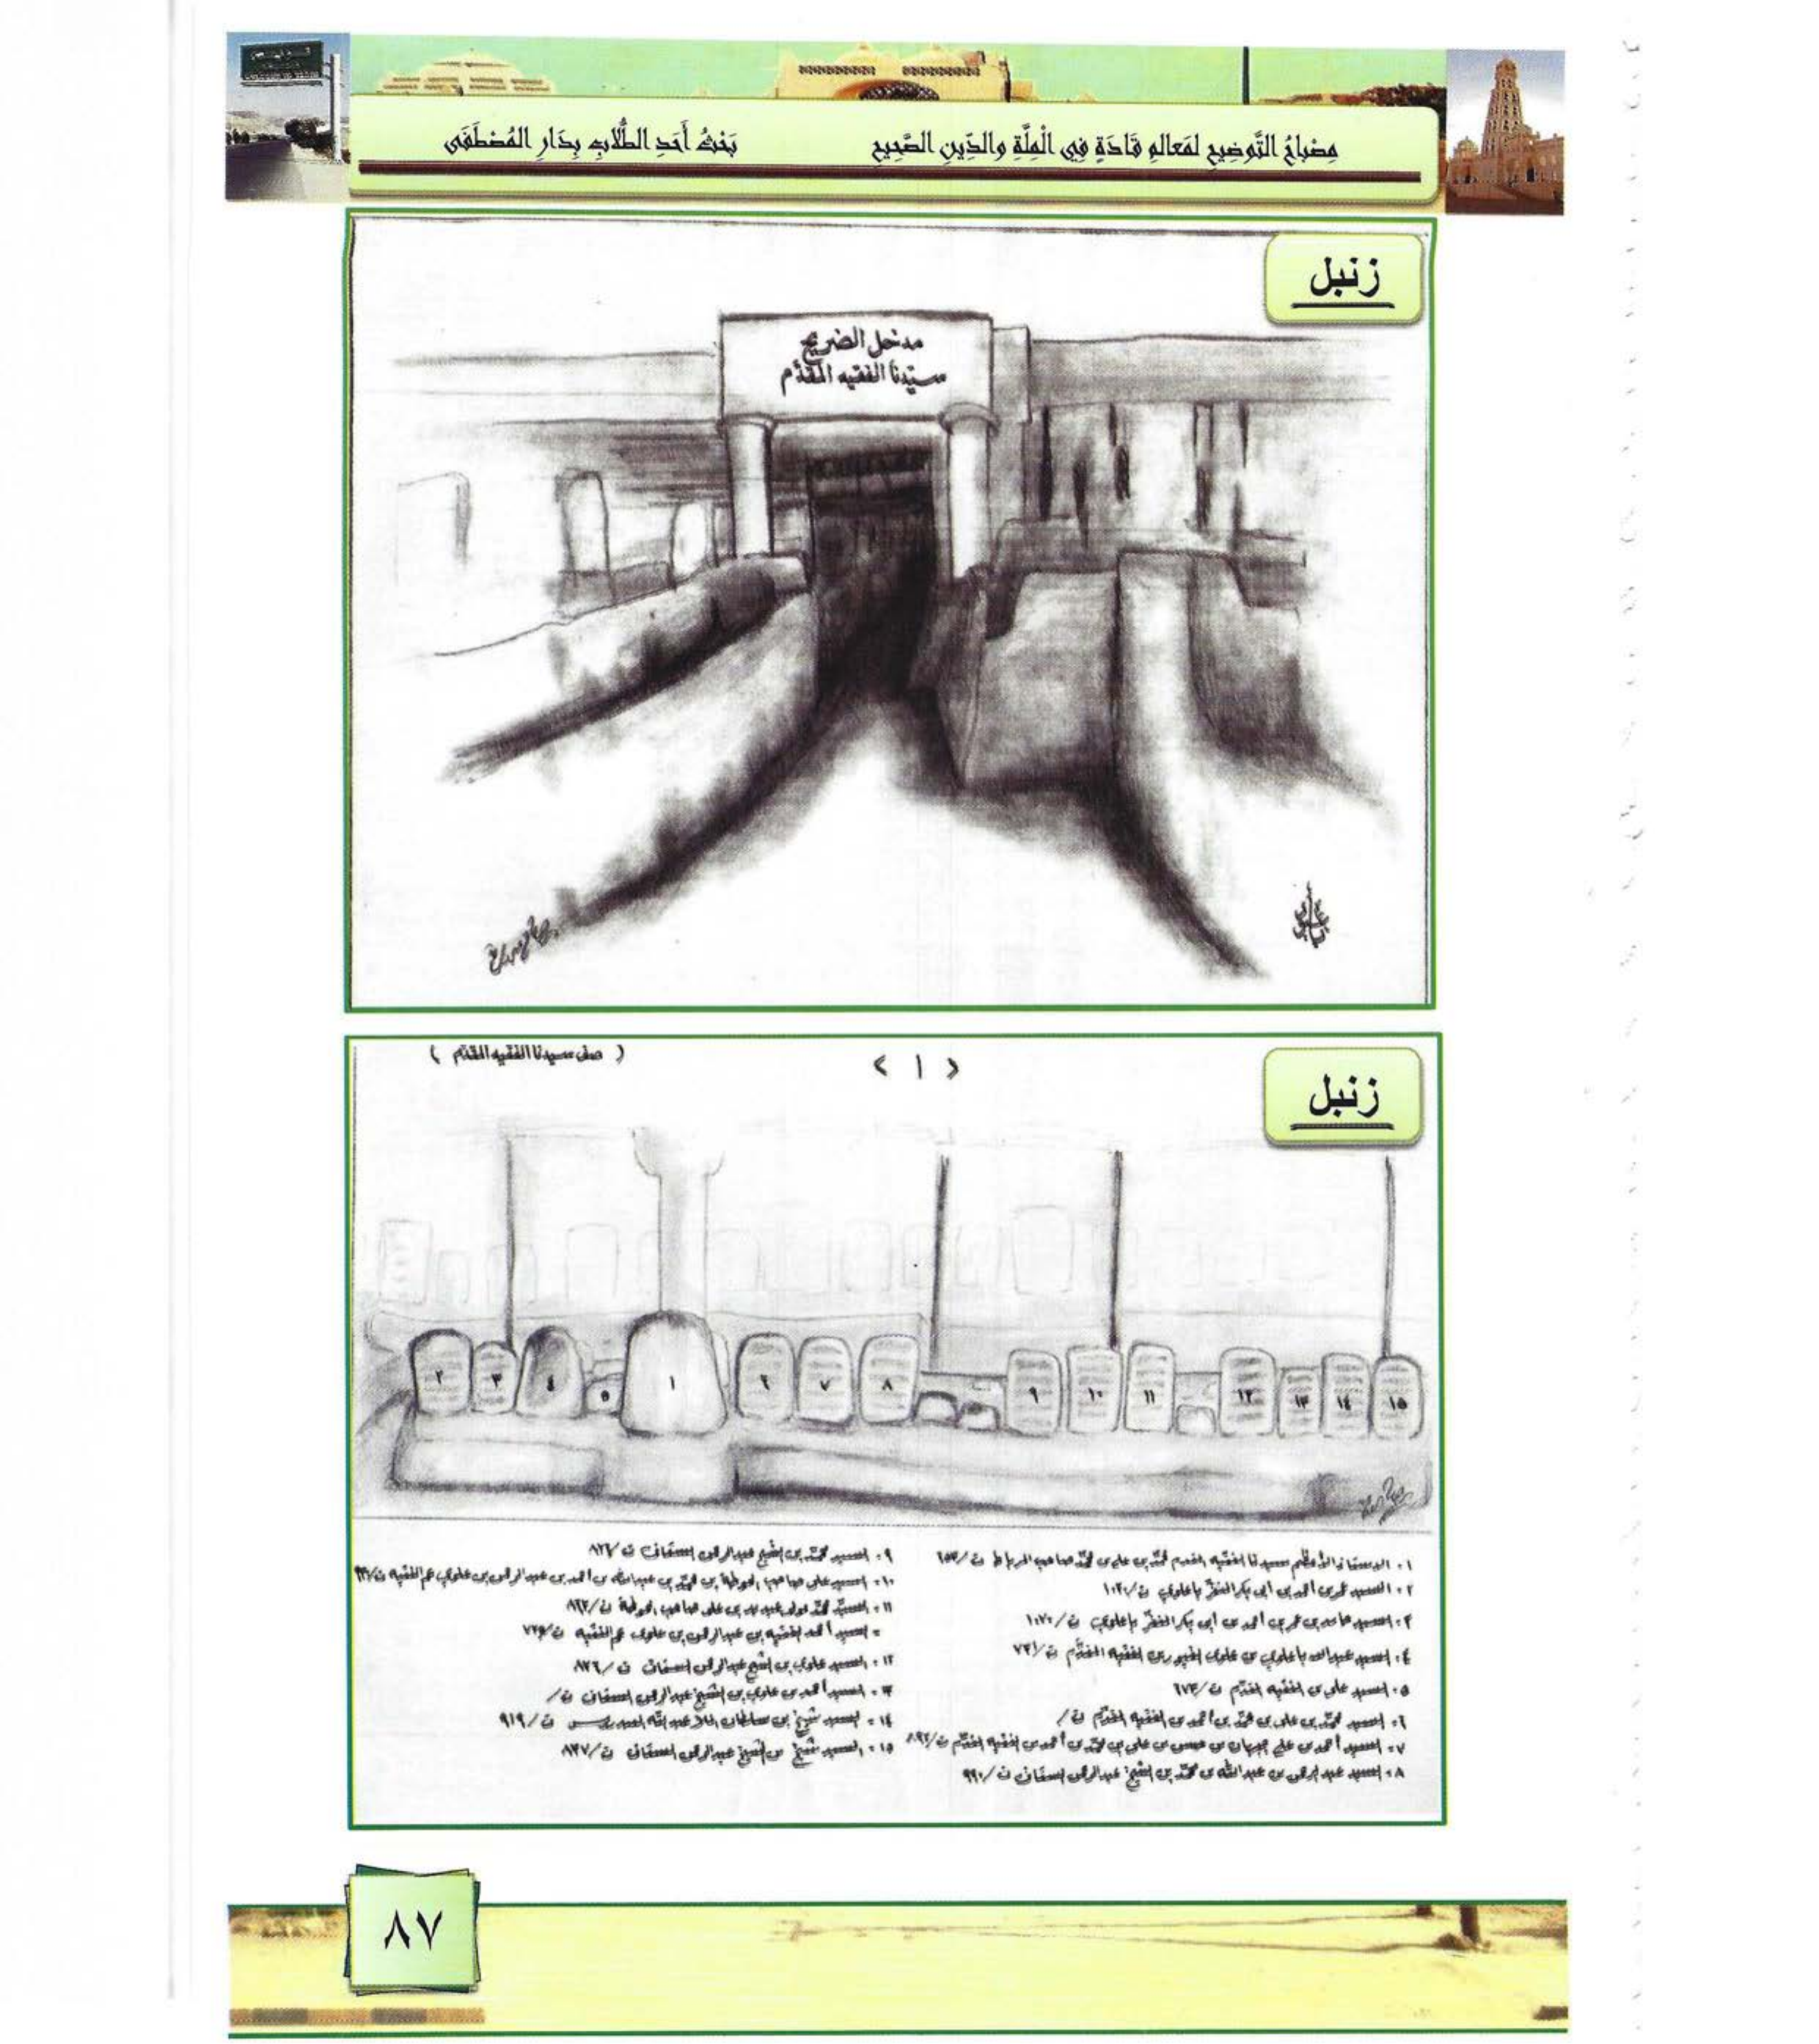 مِصْبَاحُ التَّوضِيحِ لمَعَالمِ قَادَةٍ فِي الْمِلَّةِ والدِّينِ الصَّحِيحِ
بَحْثُ أَحَدِ الطُّلَّابِ بِدَارِ المُصْطَفَى
زنبل
مدخل الضريح
سيّدنا الفقيه المقدّم
زنبل
< ١ >
( صف سيدنا الفقيه المقدم )
٢ ٣ ٤ ٥ ١ ٦ ٧ ٨ ٩ ١٠ ١١ ١٢ ١٣ ١٤ ١٥
١ - الأستاذ الأعظم سيدنا الفقيه المقدم محمّد بن علي بن محمّد صاحب المرباط ت/٦٥٣
٢ - السيد عمر بن أحمد بن أبي بكر باعلوي ت/
٣ - السيد حامد بن عمر بن أحمد بن أبي بكر باعلوي ت/١٠٧٠
٤ - السيد عبدالله باعلوي بن علوي الغيور بن الفقيه المقدّم ت/٧٣١
٥ - السيد علي بن الفقيه المقدّم ت/٦٧٣
٦ - السيد محمّد بن علي بن محمّد بن أحمد بن الفقيه المقدّم ت/
٧ - السيد أحمد بن علي بن حسن بن علي بن محمّد بن أحمد بن الفقيه المقدّم ت/
٨ - السيد عبدالرحمن بن عبدالله بن محمّد بن الشيخ عبدالرحمن السقاف ت/٩٩٠
٩ - السيد محمّد بن الشيخ عبدالرحمن السقاف ت/٨٢٦
١٠ - السيد علي صاحب الحوطة بن محمّد بن عبدالله بن أحمد بن عبدالرحمن بن علوي عم الفقيه ت/
١١ - السيّد محمّد مولى عيديد بن علي صاحب الحوطة ت/٨٦٢
= السيد أحمد الفقيه بن عبدالرحمن بن علوي عم الفقيه ت/
١٢ - السيد علوي بن الشيخ عبدالرحمن السقاف ت/٨٢٦
١٣ - السيد أحمد بن علوي بن الشيخ عبدالرحمن السقاف ت/
١٤ - السيد شيخ بن عبدالله العيدروس ت/٩١٩
١٥ - السيد شيخ بن الشيخ عبدالرحمن السقاف ت/٨٣٧
٨٧